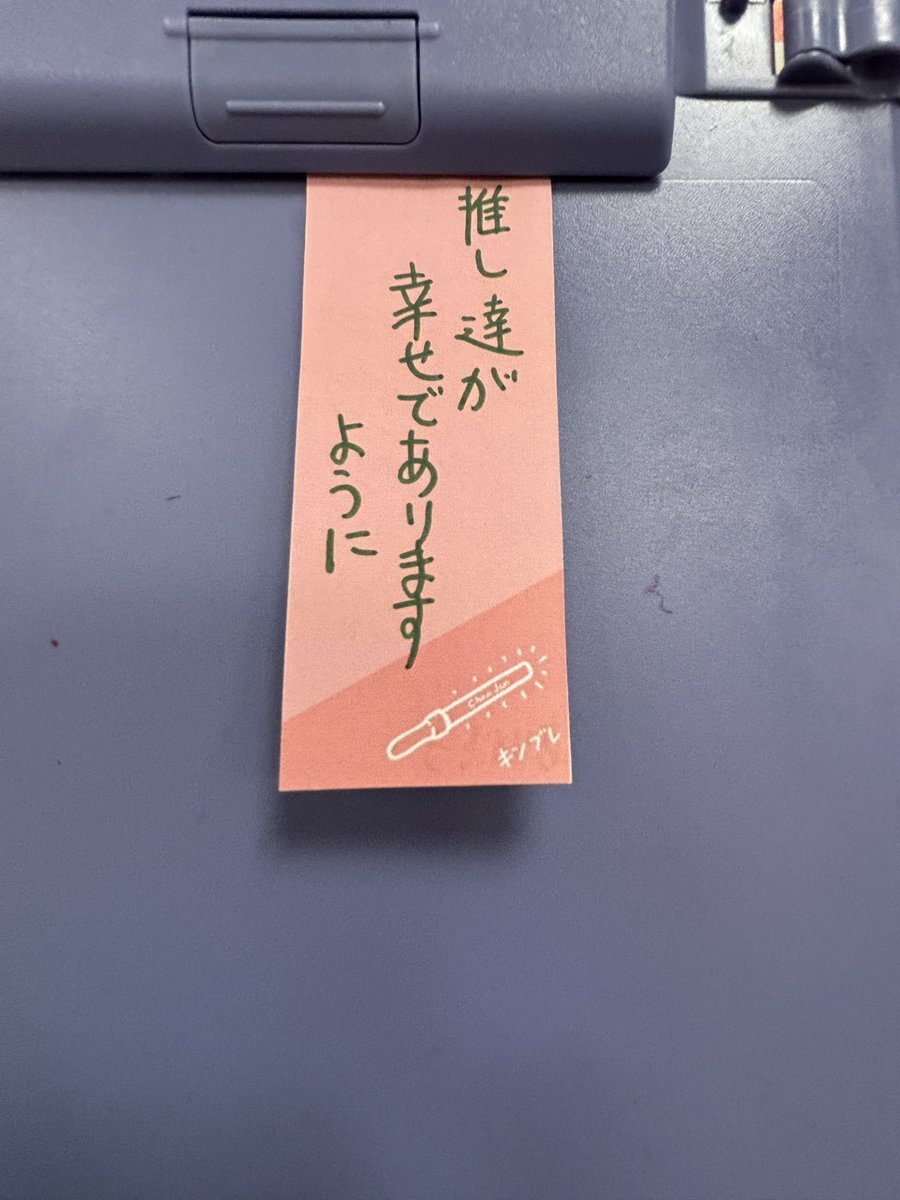 推し達が
幸せであります
ように
キンブレ